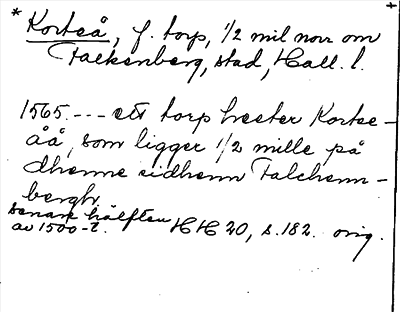 * Kortså, f. torp, 1/2 mil norr om
Falkenberg, stad, Hall. l.
1565. --- ett torp heeter Kortse-
åå, som ligger 1/2 mille på
dhenne sidhenn Falchenn-
bergh.
senare hälften
av 1500-t. HH 20, s. 182. orig.